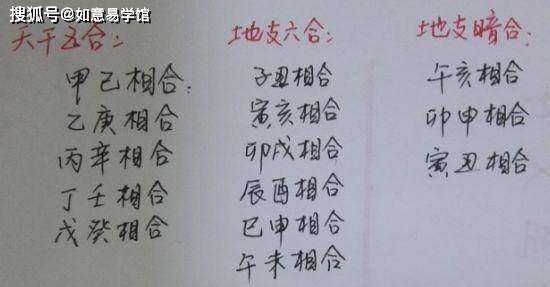 搜狐号@如意易学馆
天干五合：
甲己相合：
乙庚相合
丙辛相合
丁壬相合
戊癸相合
地支六合：
子丑相合
寅亥相合
卯戌相合
辰酉相合
巳申相合
午未相合
地支暗合：
午亥相合
卯申相合
寅丑相合